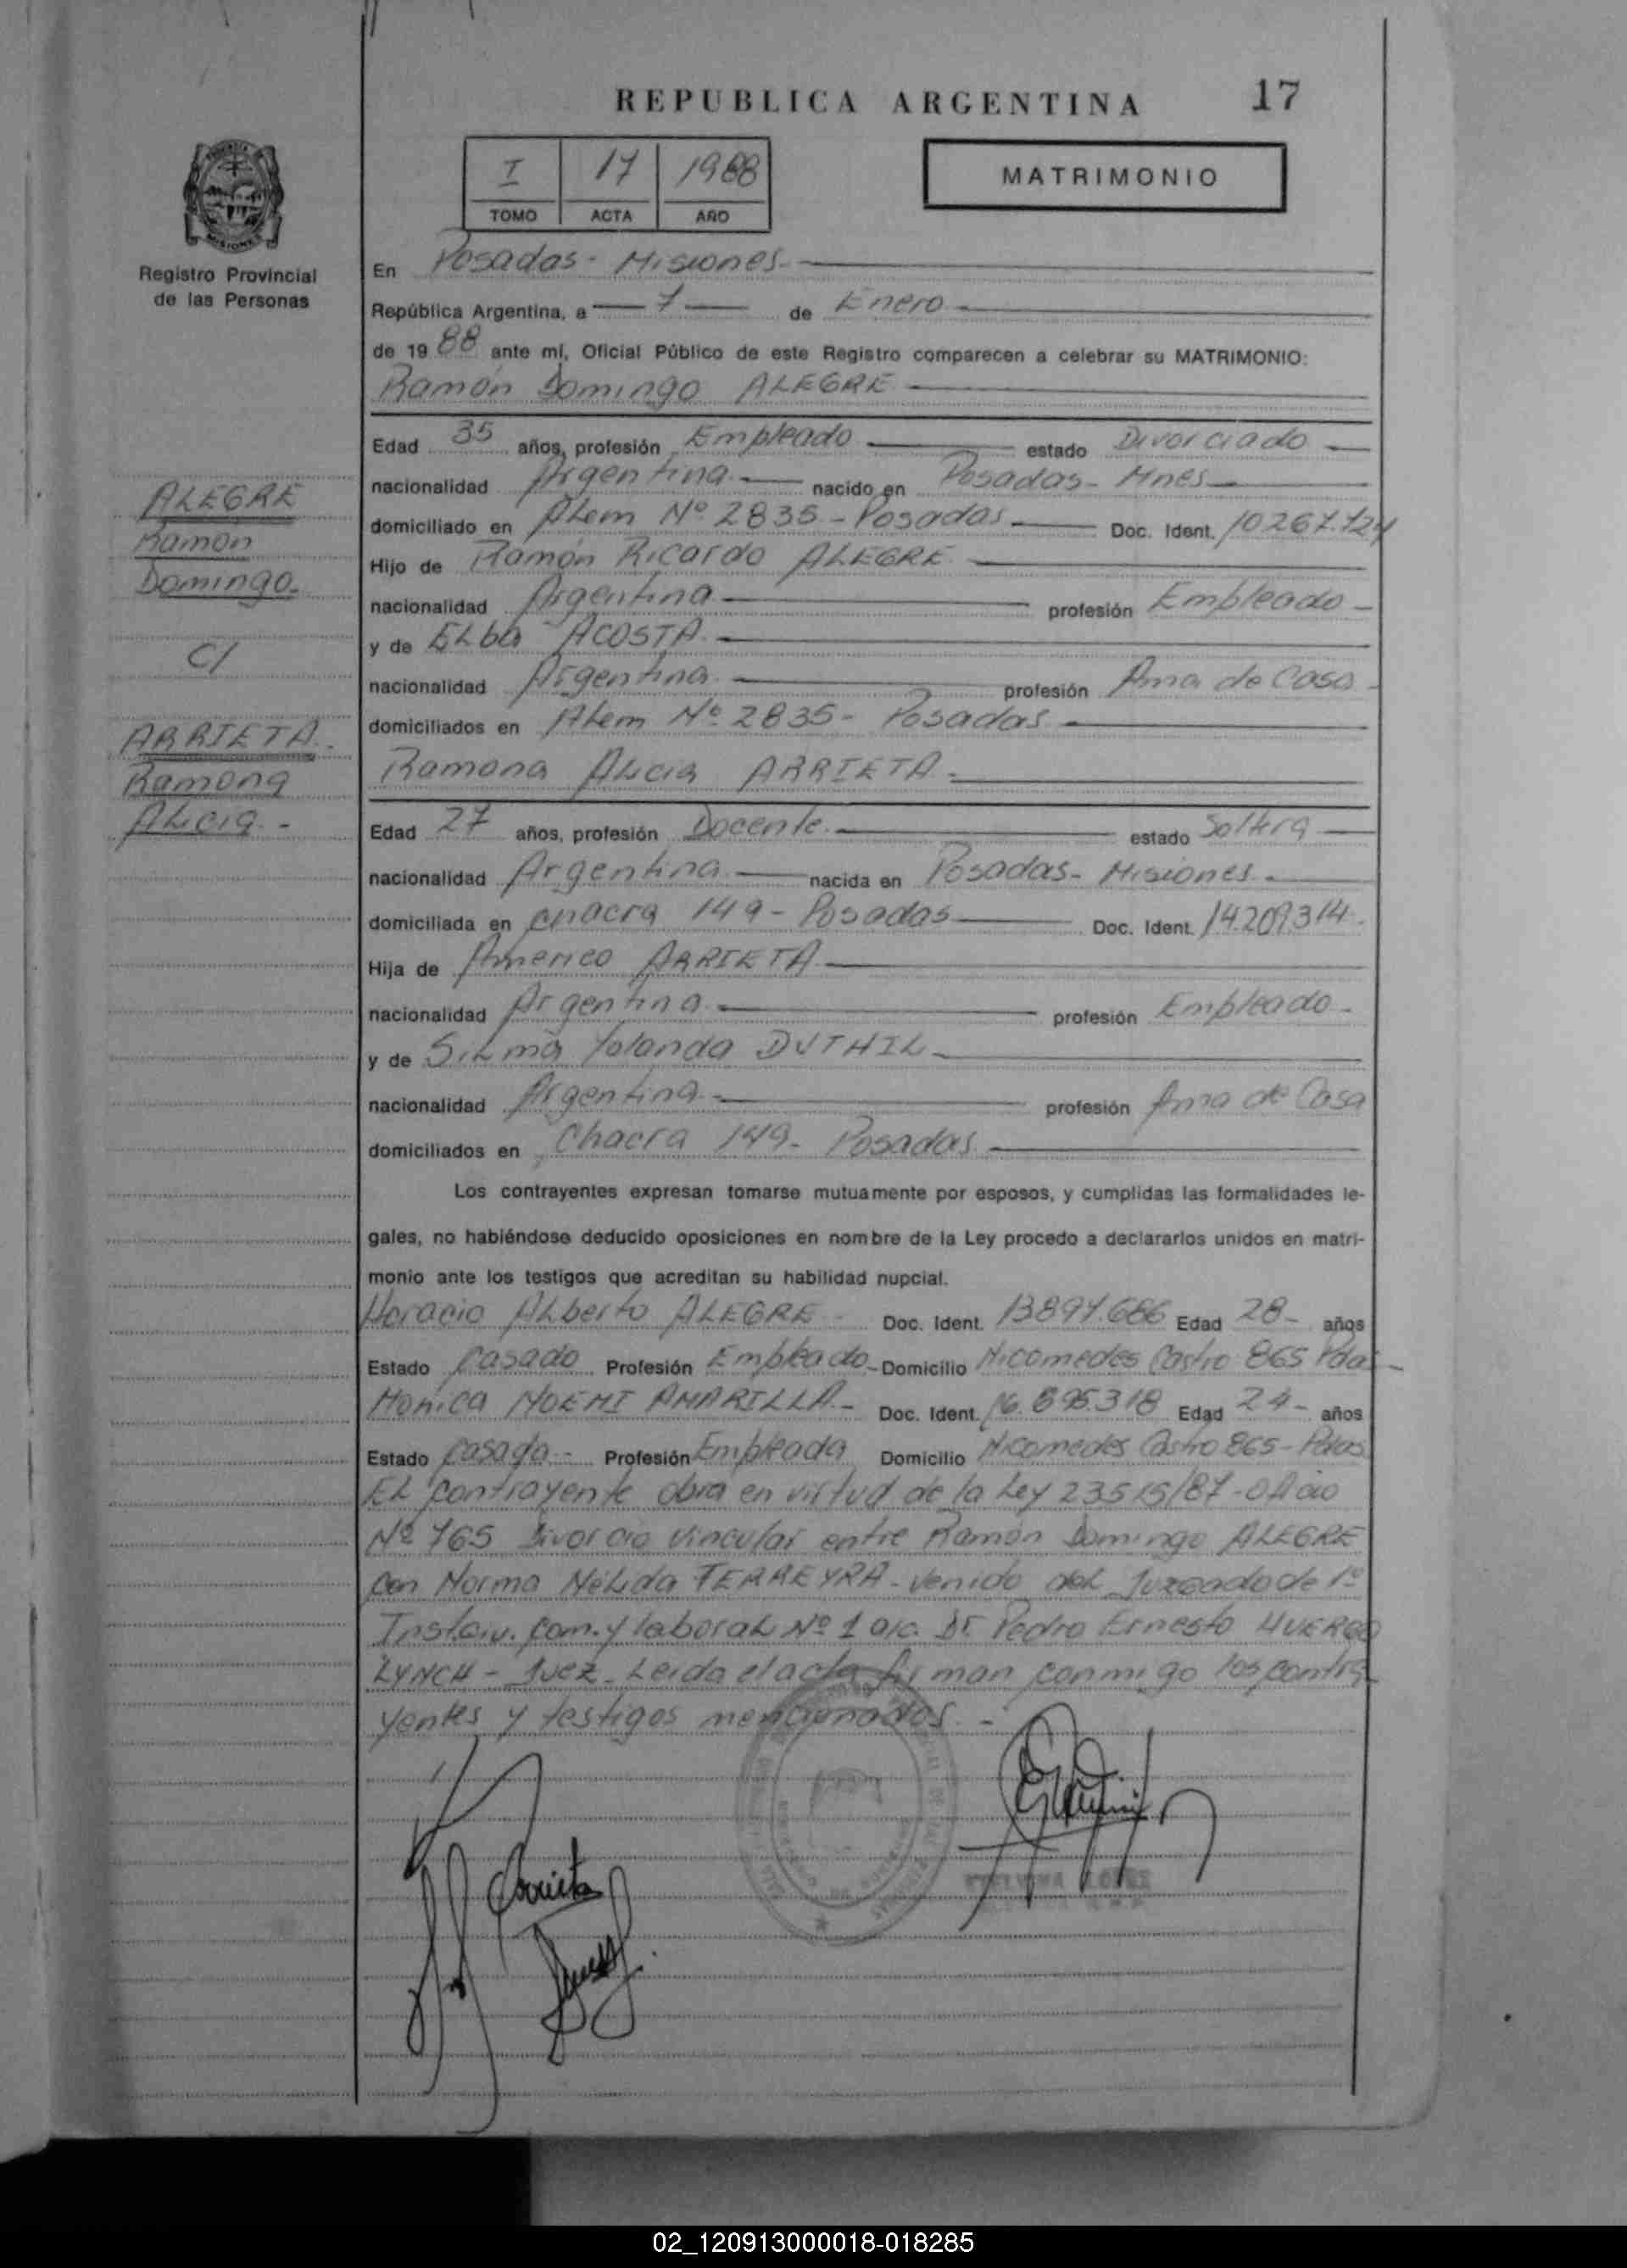 REPUBLICA ARGENTINA
17
I 17 1988
TOMO ACTA AÑO
MATRIMONIO
Registro Provincial
de las Personas
ALEGRE
Ramón
Domingo.
C/
ARRIETA.
Ramona
Alicia.-
En Posadas - Misiones.
República Argentina, a 7 de Enero
de 19 88 ante mí, Oficial Público de este Registro comparecen a celebrar su MATRIMONIO:
Ramón Domingo ALEGRE
Edad 35 años, profesión Empleado estado Divorciado
nacionalidad Argentina.- nacido en Posadas- Mnes
domiciliado en Alem Nº 2835 - Posadas. Doc. Ident. 10267.724
Hijo de Ramón Ricardo ALEGRE
nacionalidad Argentina profesión Empleado-
y de Elba ACOSTA.
nacionalidad Argentina. profesión Ama de Casa-
domiciliados en Alem Nº 2835- Posadas
Ramona Alicia ARRIETA.-
Edad 27 años, profesión Docente. estado Soltera
nacionalidad Argentina. nacida en Posadas- Misiones.
domiciliada en chacra 149 - Posadas Doc. Ident. 14.209.314.
Hija de Americo ARRIETA
nacionalidad Argentina profesión Empleado-
y de Silma Yolanda DUTHIL-
nacionalidad Argentina- profesión Ama de Casa
domiciliados en Chacra 149- Posadas.
Los contrayentes expresan tomarse mutuamente por esposos, y cumplidas las formalidades le-
gales, no habiéndose deducido oposiciones en nombre de la Ley procedo a declararlos unidos en matri-
monio ante los testigos que acreditan su habilidad nupcial.
Horacio Alberto ALEGRE- Doc. Ident. 13897.686 Edad 28- años
Estado Casado Profesión Empleado- Domicilio Nicomedes Castro 865 Pdas-
Monica NOEMI AMARILLA.- Doc. Ident. 16.695.318 Edad 24- años
Estado Casada- Profesión Empleada Domicilio Nicomedes Castro 865- Pdas
El contrayente obra en virtud de la Ley 23515/87- Oficio
Nº 765 Divorcio vincular entre Ramón Domingo ALEGRE
con Norma Nélida FERREYRA- venido del Juzgado de 1º
Inst.civ. Com. y laboral Nº 1 a/c. Dr Pedro Ernesto HUERGO
LYNCH - Juez. Leida el acta firman conmigo los contra
yentes y testigos mencionados.-
Arrieta
02_120913000018-018285